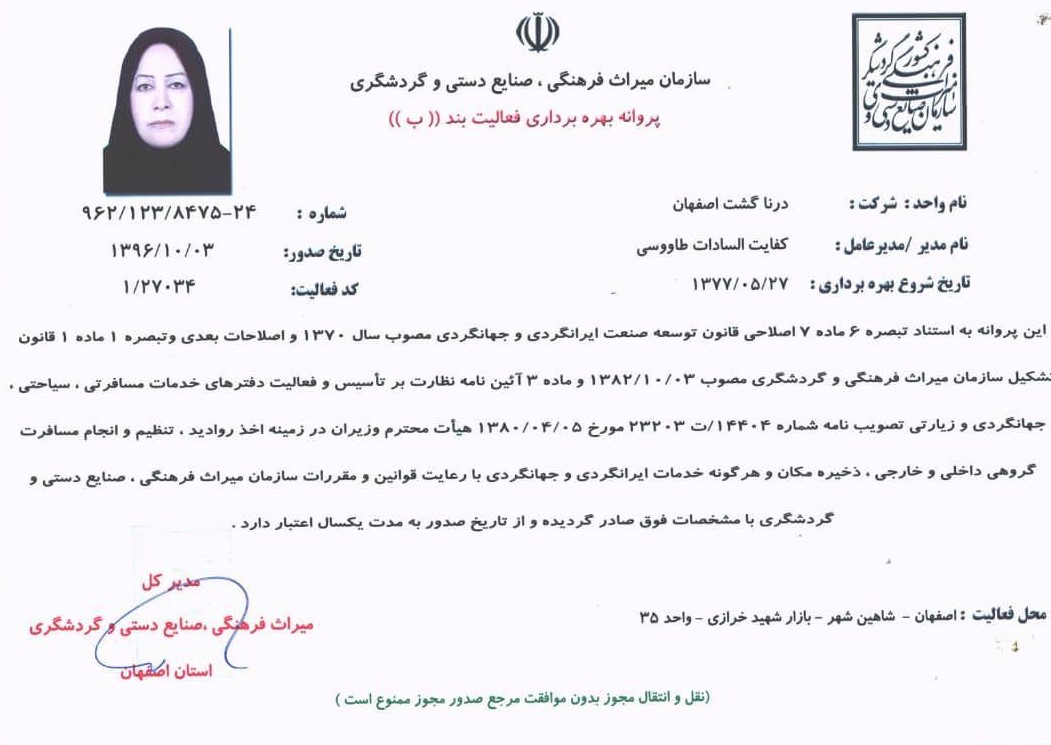 سازمان میراث فرهنگی ، صنایع دستی و گردشگری
پروانه بهره برداری فعالیت بند (( ب ))
نام واحد : شرکت : درنا گشت اصفهان
شماره : ۹۶۲/۱۲۳/۸۴۷۵-۲۴
نام مدیر /مدیرعامل : کفایت السادات طاووسی
تاریخ صدور: ۱۳۹۶/۱۰/۰۳
تاریخ شروع بهره برداری : ۱۳۷۷/۰۵/۲۷
کد فعالیت: ۱/۲۷۰۳۴
این پروانه به استناد تبصره ۶ ماده ۷ اصلاحی قانون توسعه صنعت ایرانگردی و جهانگردی مصوب سال ۱۳۷۰ و اصلاحات بعدی وتبصره ۱ ماده ۱ قانون
تشکیل سازمان میراث فرهنگی و گردشگری مصوب ۱۳۸۲/۱۰/۰۳ و ماده ۳ آئین نامه نظارت بر تأسیس و فعالیت دفترهای خدمات مسافرتی ، سیاحتی ،
جهانگردی و زیارتی تصویب نامه شماره ۱۴۴۰۴/ت ۲۳۲۰۳ مورخ ۱۳۸۰/۰۴/۰۵ هیأت محترم وزیران در زمینه اخذ روادید ، تنظیم و انجام مسافرت
گروهی داخلی و خارجی ، ذخیره مکان و هرگونه خدمات ایرانگردی و جهانگردی با رعایت قوانین و مقررات سازمان میراث فرهنگی ، صنایع دستی و
گردشگری با مشخصات فوق صادر گردیده و از تاریخ صدور به مدت یکسال اعتبار دارد .
مدیر کل
میراث فرهنگی ،صنایع دستی و گردشگری
استان اصفهان
محل فعالیت : اصفهان - شاهین شهر - بازار شهید خرازی - واحد ۳۵
(نقل و انتقال مجوز بدون موافقت مرجع صدور مجوز ممنوع است )